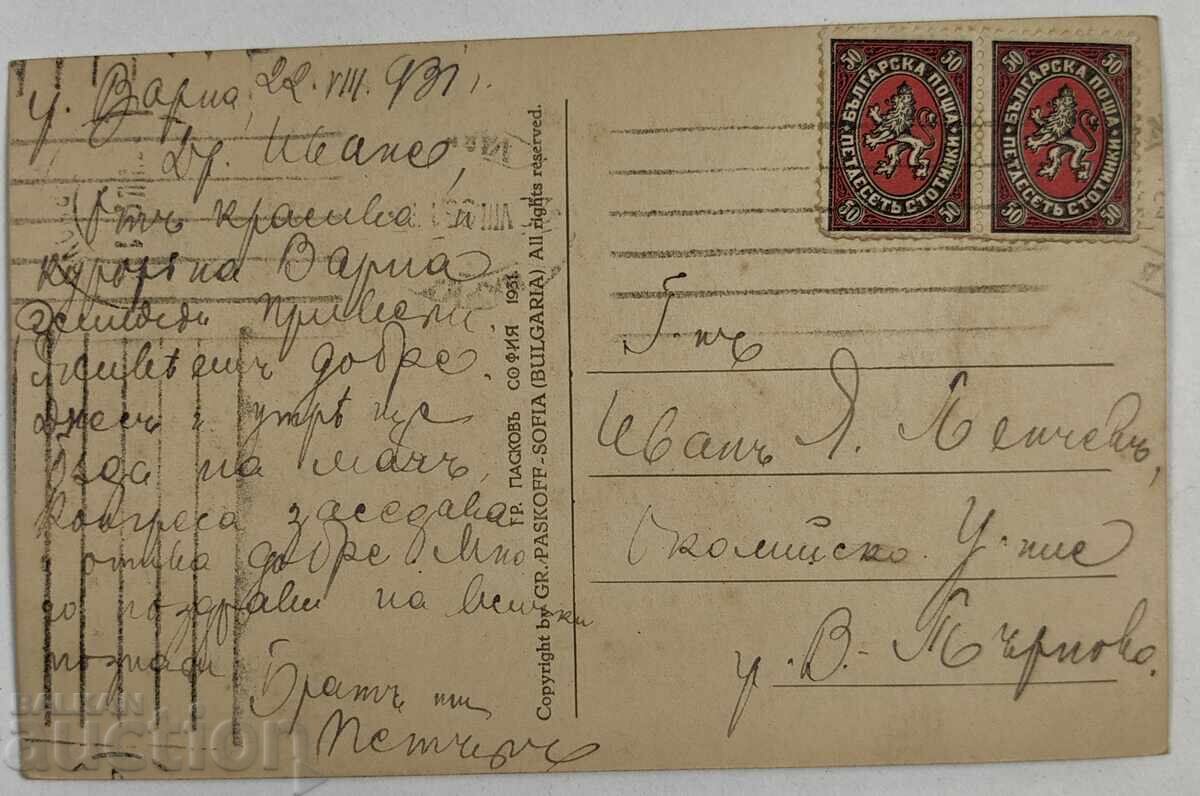 гр. Варна, 22. VIII. 931.
Др. Иване,
Отъ красива и
курортна Варна
приветъ.
Живѣемъ добре.
Днесъ и утрѣ ще
бѫда на мачъ,
Конгреса заседава
и отива добре. Мно
го поздрави на всички
познати.
Братъ ти
Петъръ
ГР. ПАСКОВЪ СОФИЯ 1931
Copyright by GR. PASKOFF-SOFIA (BULGARIA) All rights reserved.
50 50
БЪЛГАРСКА ПОЩА
ПЕТДЕСЕТЬ СТОТИНКИ
50 50
50 50
БЪЛГАРСКА ПОЩА
ПЕТДЕСЕТЬ СТОТИНКИ
50 50
Г-нъ
Иванъ Я. Пенчевъ,
Околийско У-ние
гр. В.-Търново.
BALKAN
auction